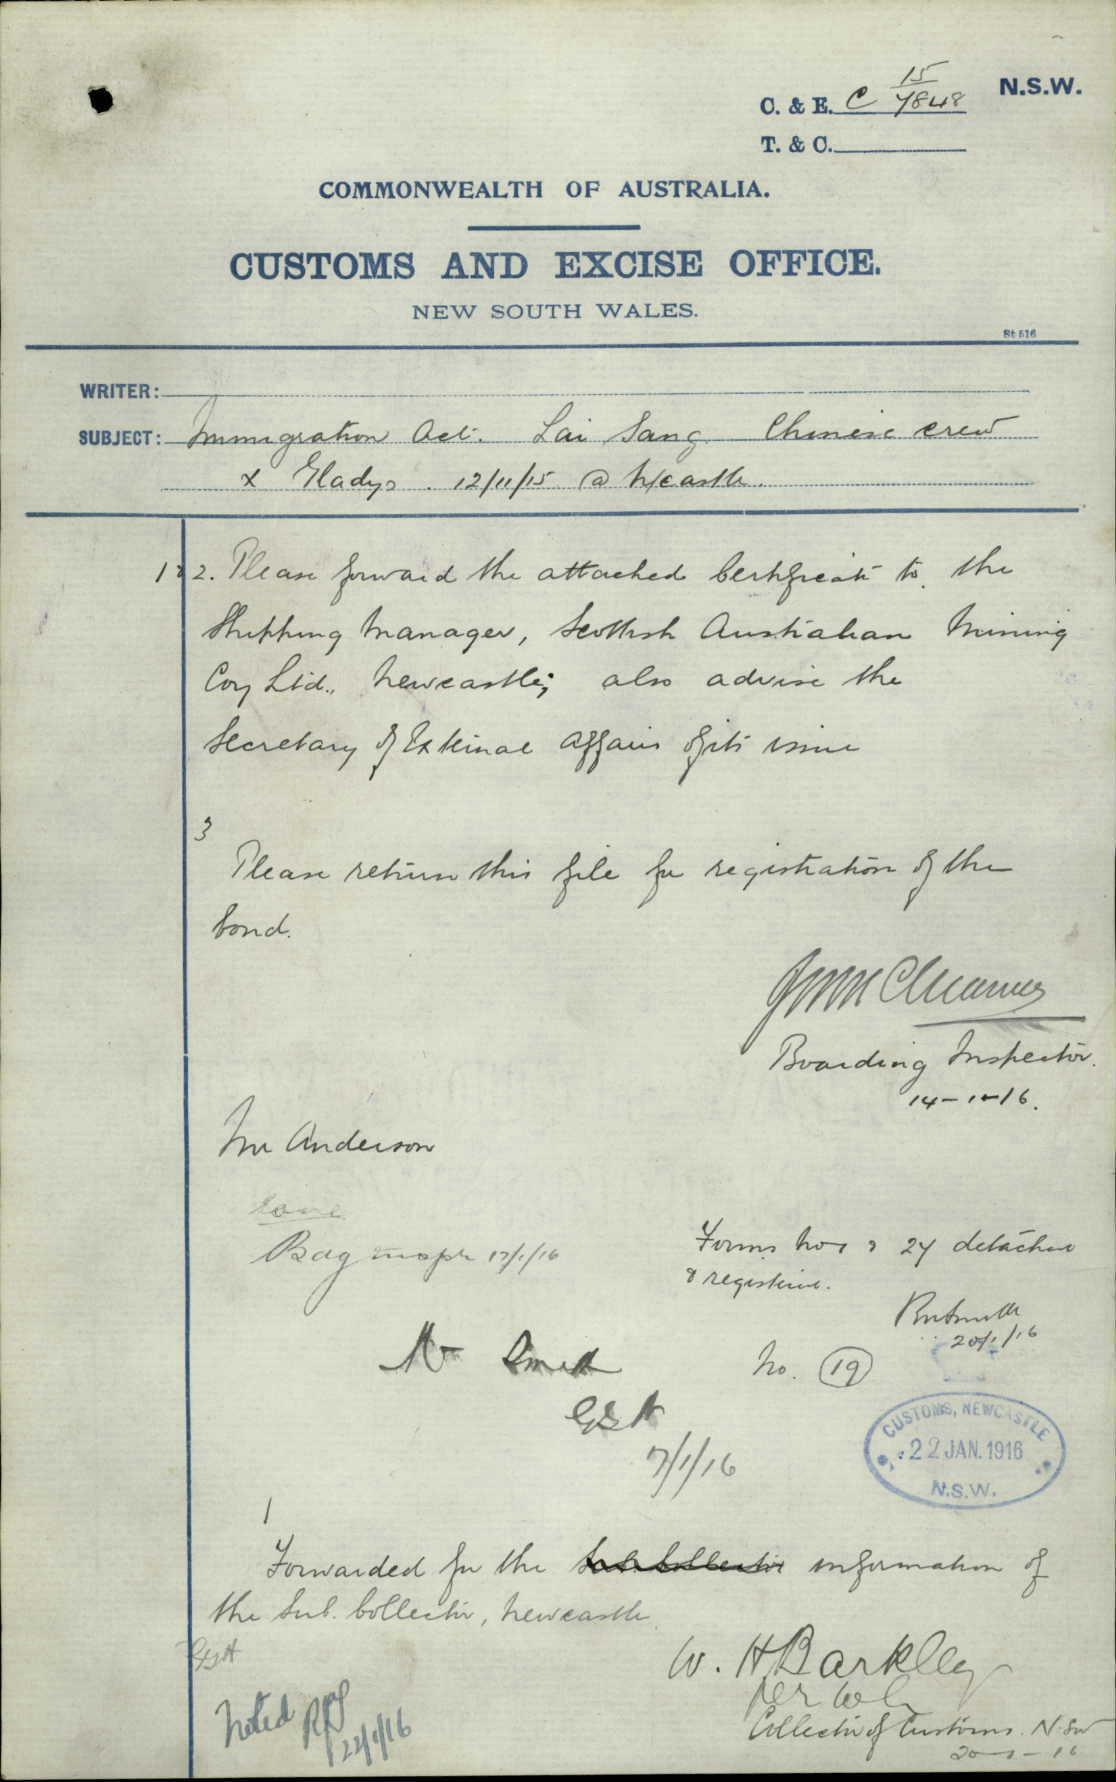 C. & E. C 15/7848 N.S.W.
T. & C.
COMMONWEALTH OF AUSTRALIA.
CUSTOMS AND EXCISE OFFICE.
NEW SOUTH WALES.
St 516
WRITER:
SUBJECT: Immigration Act. Lai Sang Chinese crew
x Gladys. 12/11/15 @ N/castle.
2. Please forward the attached Certificate to the
Shipping Manager, Scottish Australian Mining
Coy Ltd., Newcastle; also advise the
Secretary of External Affairs of its issue
3
Please return this file for registration of the
bond.
Boarding Inspector.
14-1-16.
Mr Anderson
17/1/16
Forms Nos 1 & 24 detached
& registered.
20/1/16
Mr Smith
No. 19
7/1/16
CUSTOMS, NEWCASTLE
22 JAN. 1916
N.S.W.
1
Forwarded for the Sub Collector information of
the Sub. Collector, Newcastle
W. H Barkley
Collector of Customs. N.S.W
20-1-16
Noted
22/1/16